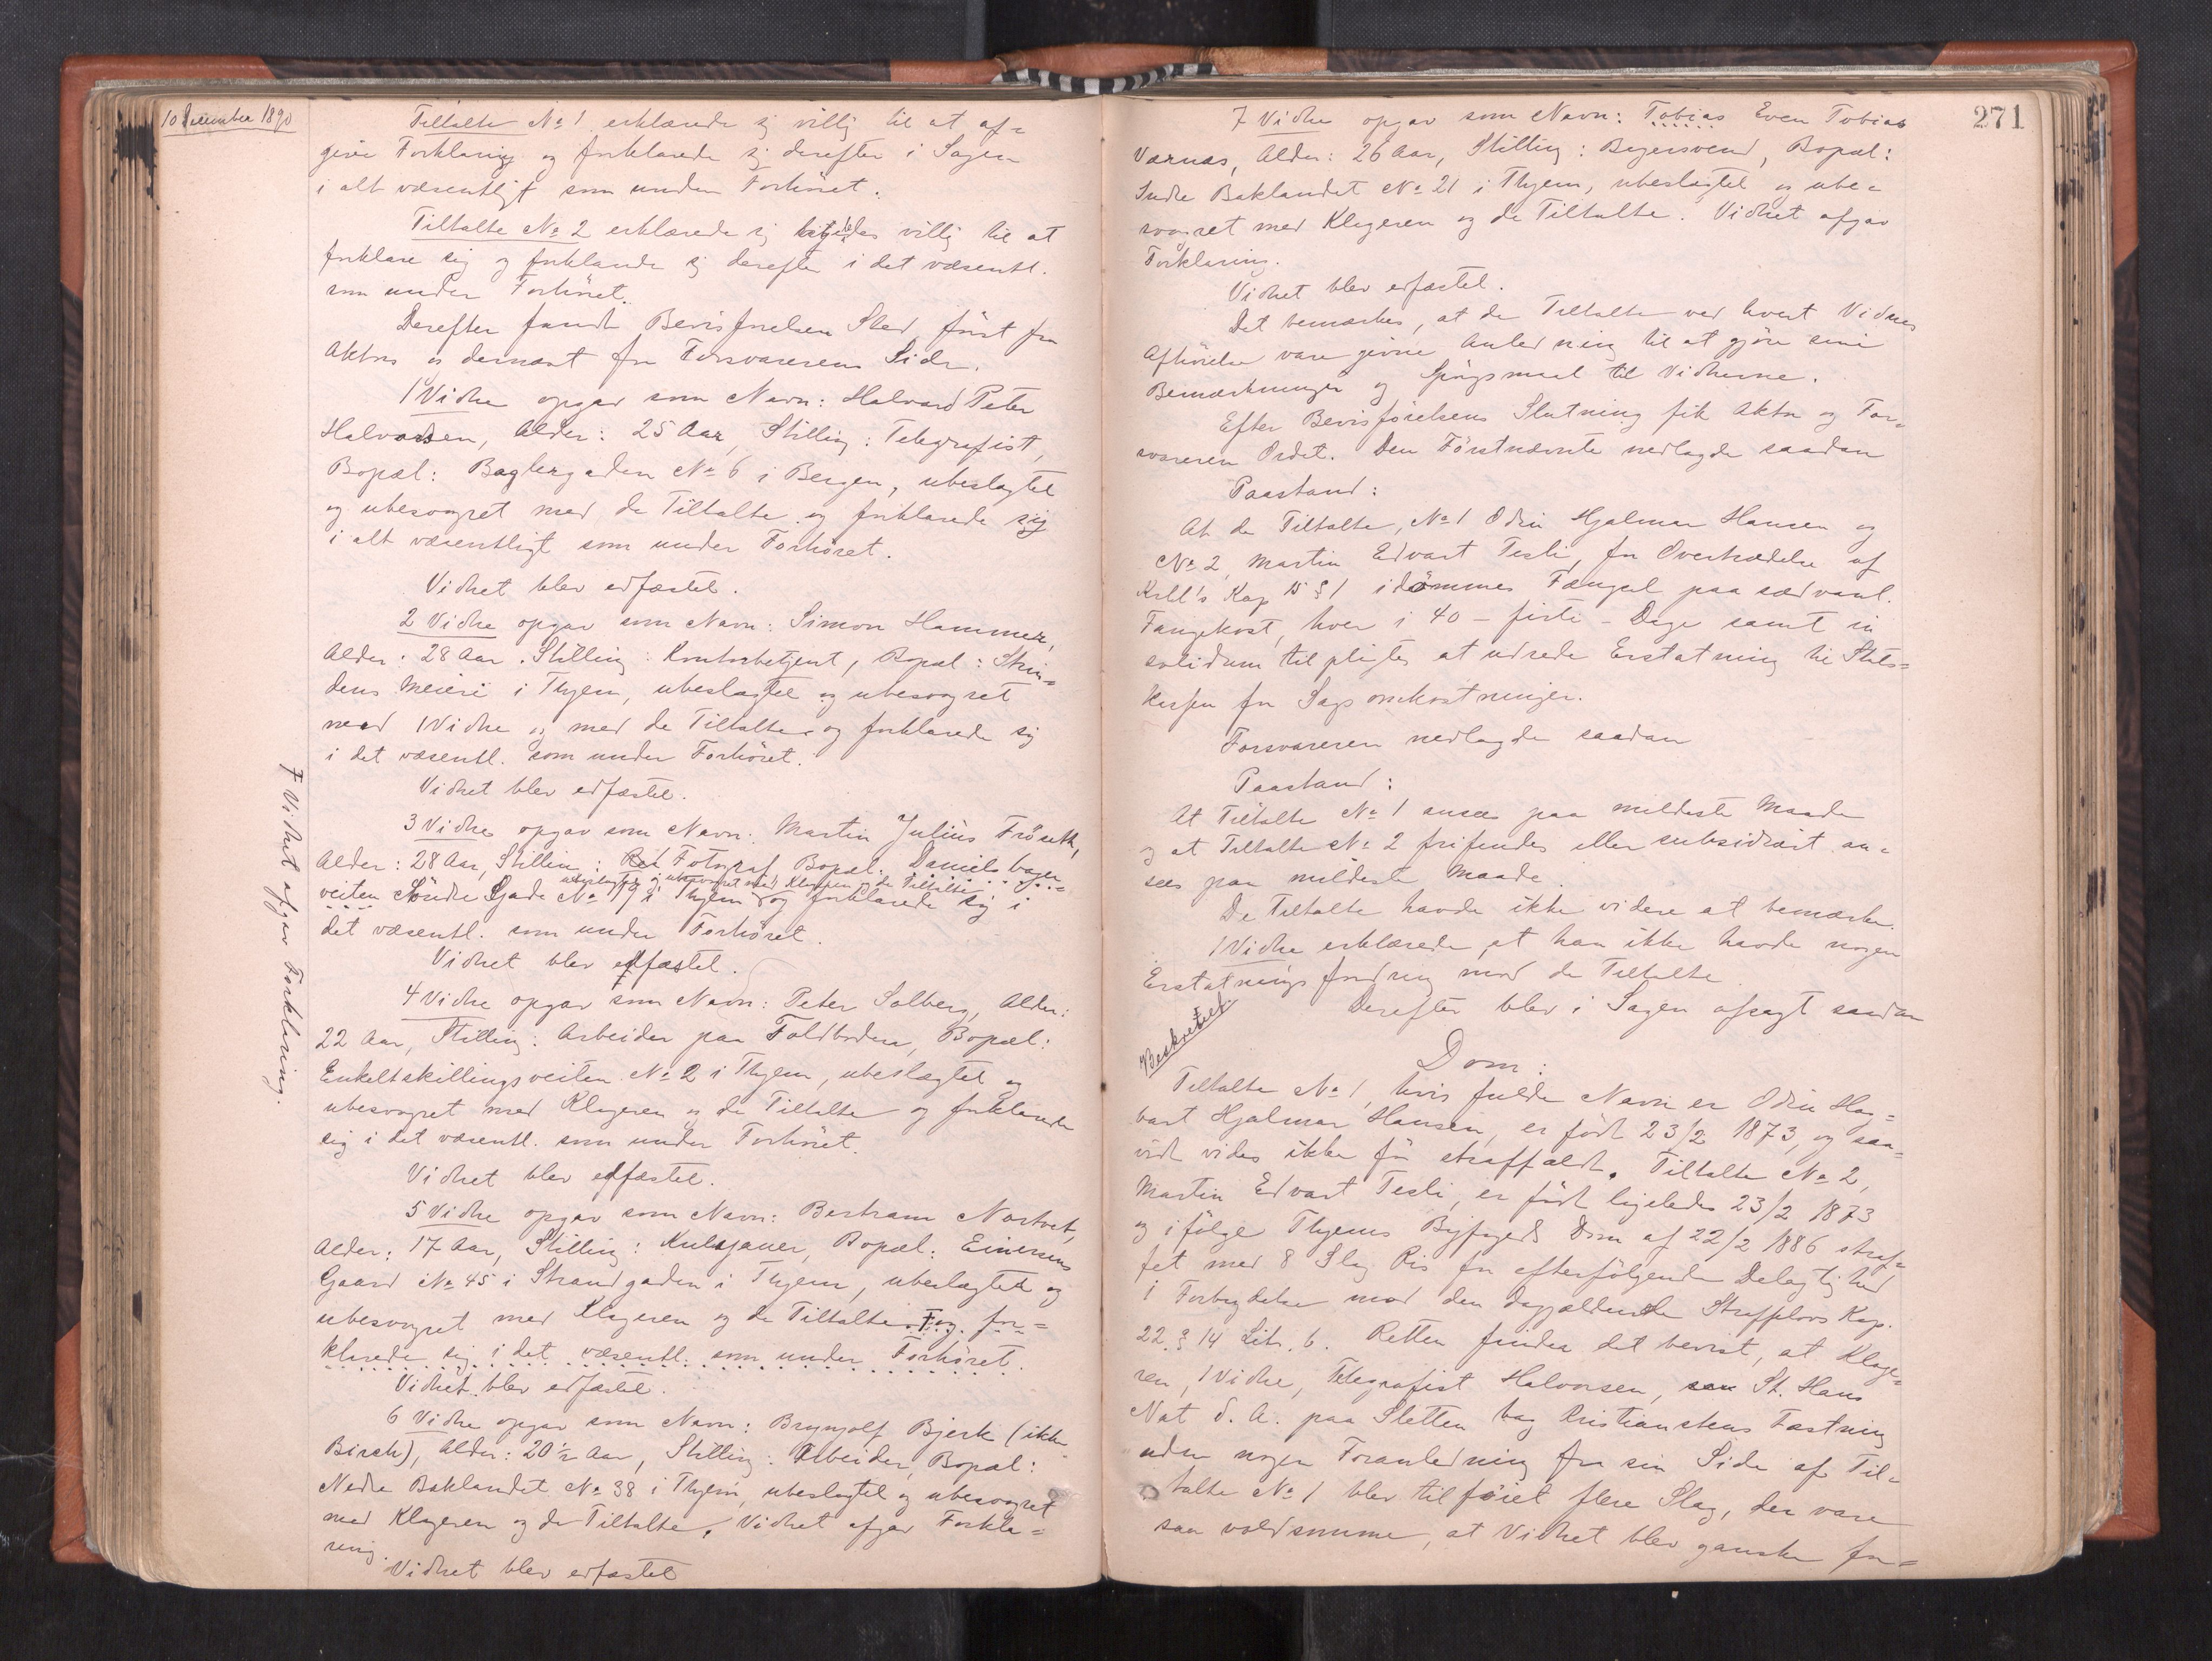 10 December 1890
Tiltalte № 1 erklærede sig villig til at af=
give Forklaring og forklarede sig derefter i Sagen
i alt væsentligt som under Forhöret.
Tiltalte № 2 erklærede sig ligeledes villig til at
forklare sig og forklarede sig derefter i det væsentl.
som under Forhöret.
Derefter fandt Bevisförelsen Sted, först fra
Aktors og dernæst fra Forsvarerens Side.
1 Vidne opgav som Navn: Halvard Peter
Halvorsen, Alder: 25 Aar, Stilling: Telegrafist,
Bopæl: Baglergaden № 6 i Bergen, ubeslægtet
og ubesvogret med de Tiltalte og forklarede sig
i alt væsentligt som under Forhöret.
Vidnet blev edfæstet.
2 Vidne opgav som Navn: Simon Hammer,
Alder: 28 Aar. Stilling: Kontorbetjent, Bopæl: Strin=
dens Meieri i Thjem, ubeslægtet og ubesvogret
med 1 Vidne og med de Tiltalte og forklarede sig
i det væsentl. som under Forhöret.
Vidnet blev edfæstet.
3 Vidne opgav som Navn: Martin Julius Fröseth,
Alder: 28 Aar, Stilling: Fotograf Bopæl: Daniels bager
ubeslægtet og ubesvogret med Klageren og de Tiltalte
veiten Söndre Gade № 19 i Thjem og forklarede sig i
det væsentl. som under Forhöret.
Vidnet blev edfæstet.
4 Vidne opgav som Navn: Peter Solberg, Alder:
22 Aar, Stilling: Arbeider paa Toldboden, Bopæl:
Enkeltskillingsveiten № 2 i Thjem, ubeslægtet og
ubesvogret med Klageren og de Tiltalte og forklarede
sig i det væsentl. som under Forhöret.
Vidnet blev edfæstet.
5 Vidne opgav som Navn: Bertram Nortvet,
Alder: 17 Aar, Stilling: Kulsjauer, Bopæl: Einersens
Gaard № 45 i Strandgaden i Thjem, ubeslægtet og
ubesvogret med Klageren og de Tiltalte. F og for=
klarede sig i det væsentl. som under Forhöret.
Vidnet blev edfæstet.
6 Vidne opgav som Navn: Brynjolf Bjerk (ikke
Birch), Alder: 20 ½ Aar, Stilling: Arbeider, Bopæl:
Nedre Baklandet № 38 i Thjem, ubeslægtet og ubesvogret
med Klageren og de Tiltalte. Vidnet afgav Forkla=
ring.
Vidnet blev edfæstet
F Vidnet afgav Forklaring.
271
7 Vidne opgav som Navn: Tobias Even Tobias
Værnæs, Alder: 26 Aar, Stilling: Bagersvend, Bopæl:
Indre Baklandet № 21 i Thjem, ubeslægtet og ube=
svogret med Klageren og de Tiltalte. Vidnet afgav
Forklaring.
Vidnet blev edfæstet.
Det bemærkes, at de Tiltalte ved hvert Vidnes
Afhörelse vare givne Anledning til at gjöre sine
Bemærkninger og Spörgsmaal til Vidnerne.
Efter Bevisförelsens Slutning fik Aktor og For=
svareren Ordet. Den Förstnævnte nedlagde saadan
Paastand:
At de Tiltalte, № 1 Odin Hjalmar Hansen og
№ 2, Martin Edvart Tesli, for Overtrædelse af
Krbl's Kap 15 § 1 idömmes Fængsel paa sædvanl.
Fangekost, hver i 40 – firti – Dage samt in
solidum tilpligtes at udrede Erstatning til Stats=
kassen for Sagsomkostninger.
Forsvareren nedlagde saadan
Paastand:
At Tiltalte № 1 ansees paa mildeste Maade
og at Tiltalte № 2 frifindes eller subsidiært an=
sees paa mildeste Maade.
De Tiltalte havde ikke videre at bemærke.
1 Vidne erklærede, at han ikke havde nogen
Erstatningsfordring mod de Tiltalte.
Beskrevet
Derefter blev i Sagen afsagt saadan
Dom:
Tiltalte № 1, hvis fulde Navn er Odin Hag=
bart Hjalmar Hansen, er född 23/2 1873, og saa=
vidt vides ikke för straffældt. Tiltalte № 2,
Martin Edvart Tesli, er född ligeledes 23/2 1873
og ifölge Thjems Byfogeds Dom af 22/2 1886 straf=
fet med 8 Slag Ris for efterfölgende Delagtighed
i Forbrydelse mod den dagjældende Straffelovs Kap.
22 § 14 Litr. b. Retten finder det bevist, at Klage=
ren, 1 Vidne, Telegrafist Halvorsen, St. Hans
Nat d. A. paa Sletten bag Kristianstens Fæstning
uden nogen Foranledning fra sin Side af Til=
talte № 1 blev tilföiet flere Slag, der vare
saa voldsomme, at Vidnet blev ganske for=